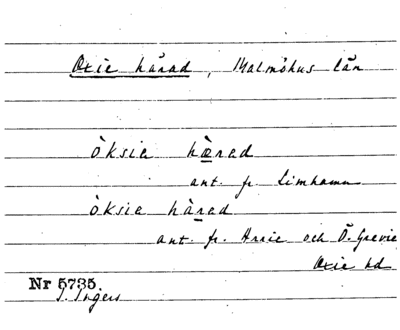 Oxie härad, Malmöhus län
òksia hæ̀rad
ant. fr. Limhamn
òksia hàrad
ant. fr. Arrie och Ö. Grevie
Oxie hd
Nr 5735.
I. Ingers